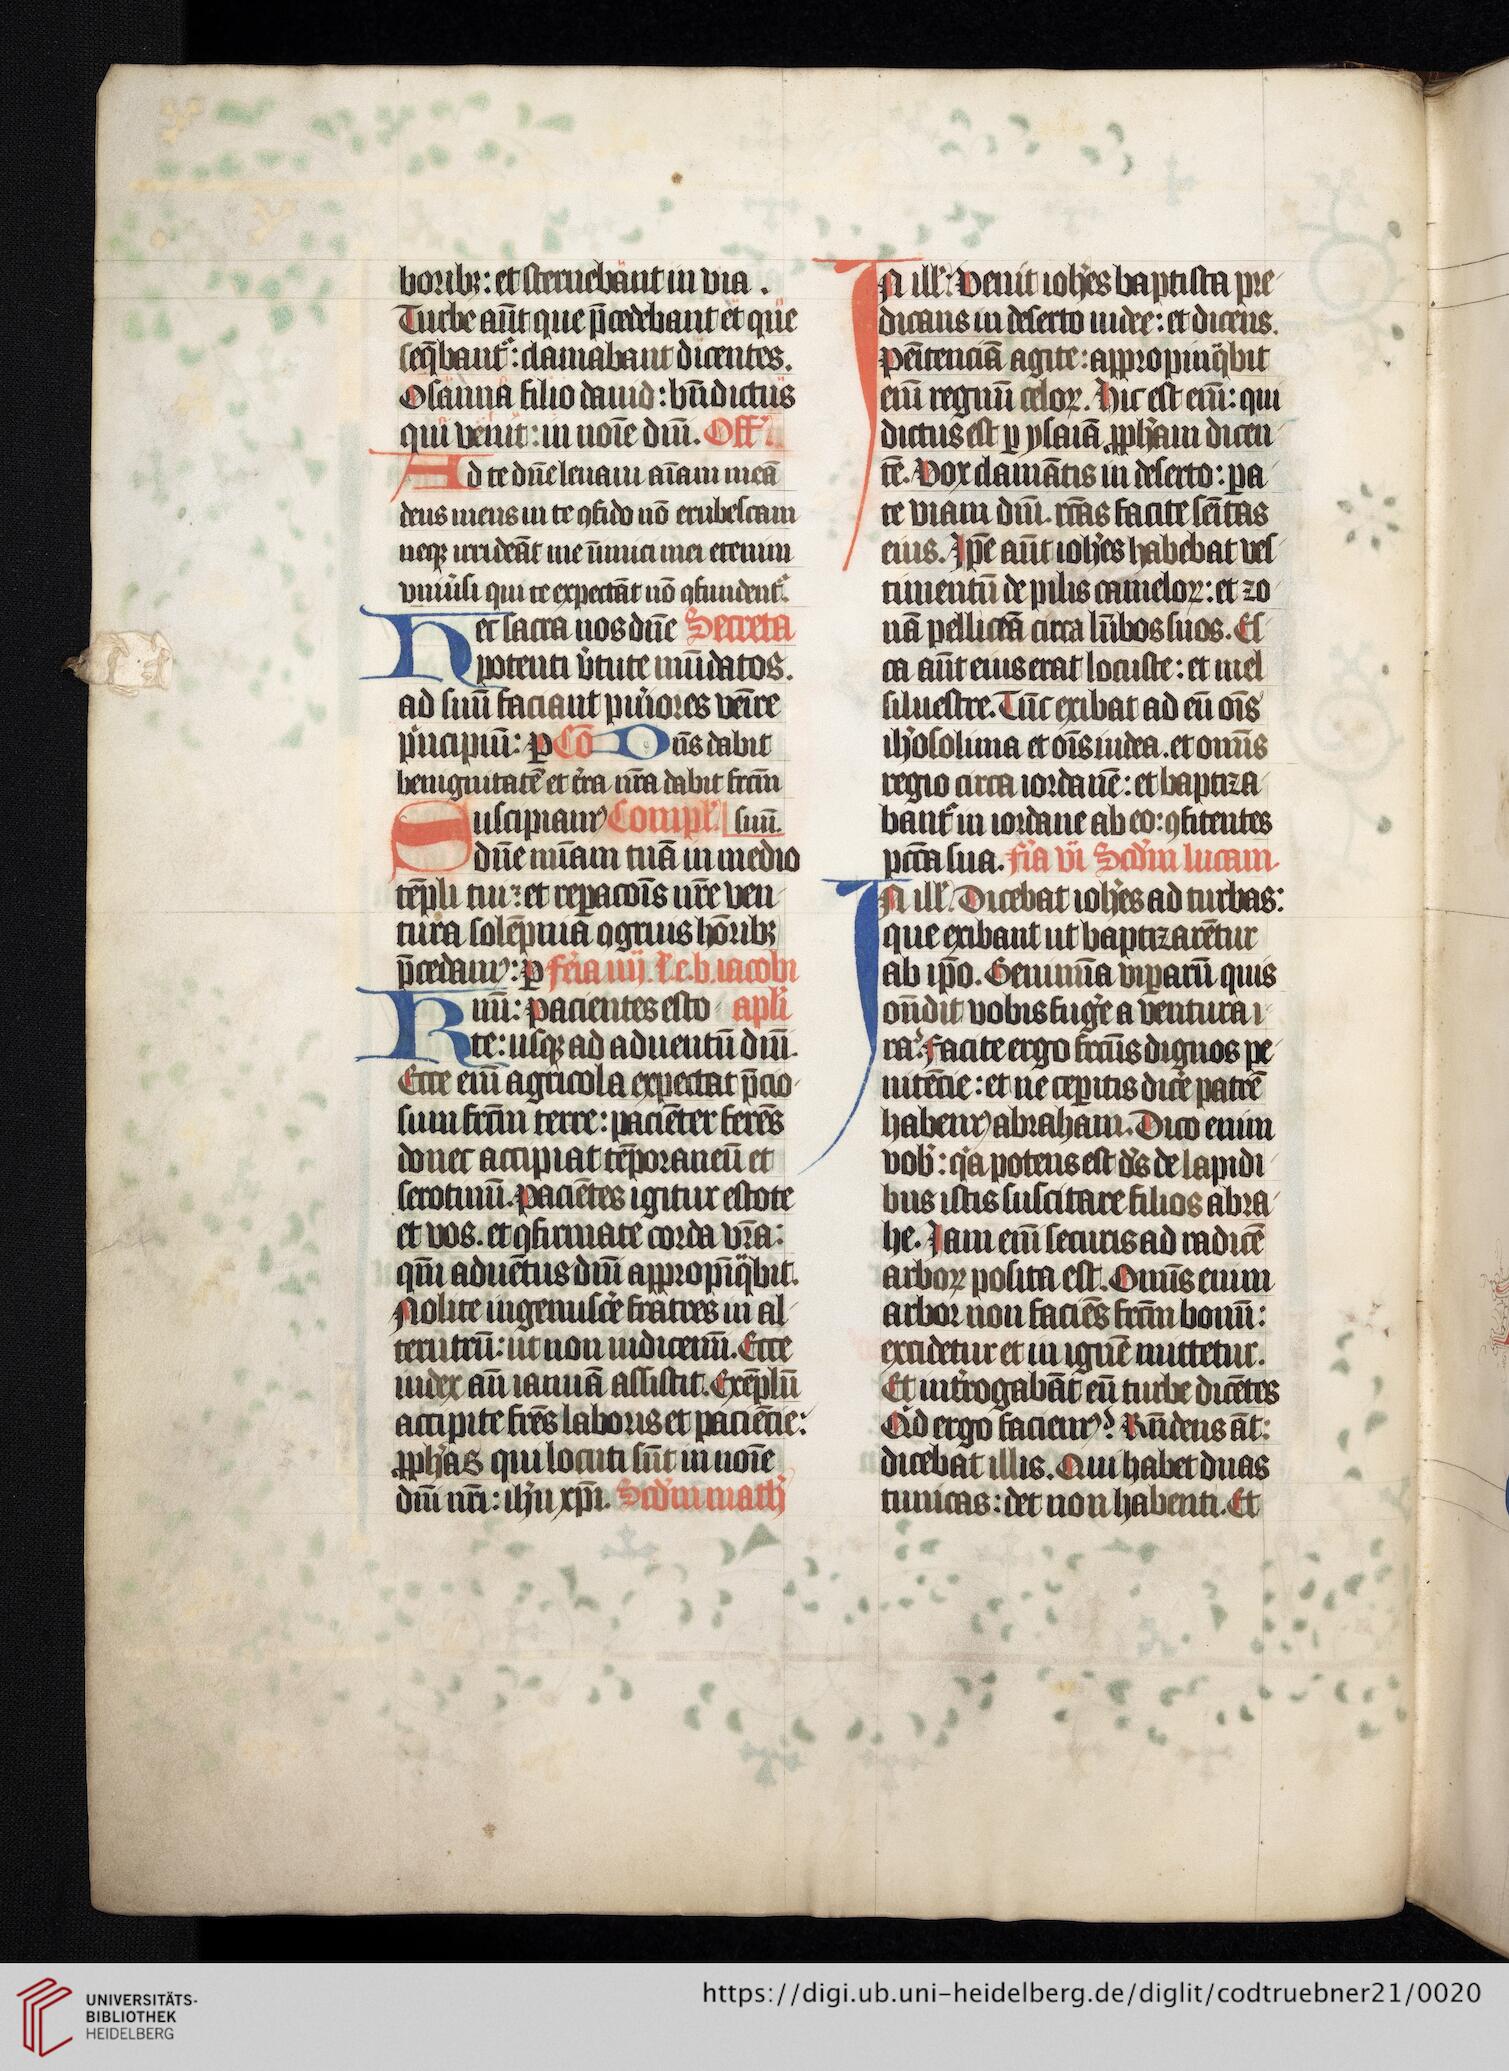 boribꝫ: et sternebant in via.
Turbe aūt que p̄cedebant et que
seq̄bantᷣ: clamabant dicentes.
Osanna filio dauid: bn̄dictus
qui venit: in noīe dnī. Off̓.
Ad te dn̄e leuaui aīam meā
deus meus in te ꝯfido nō erubescam
neqꝫ irrideāt me inimici mei etenim
vniūsi qui te expectāt nō ꝯfundentᷣ.
Hec sacra nos dn̄e Secreta
potenti v̓tute mūdatos.
ad suū faciant puriores venīre
p̓ncipiū: ꝑ Cō Dn̄s dabit
benignitatē et t̓ra nr̄a dabit frc̄m
Suscipiamꝰ Compl̓. suū.
dn̄e mīam tuā in medio
tēpli tui: et reꝑacōīs nr̄e ven-
tura solēpnia ꝯgruis hōribꝫ
p̄cedamꝰ: ꝑ fēia iiij. l̄c. b. iacobi
Rmī: pacientes esto- apl̓i
te: usqꝫ ad aduentū dnī.
Ecce enī agricola expectat p̄cio-
sum frc̄m terre: pacienter ferēs
donec accipiat tēporaneū et
serotinū. Paciētes igitur estote
et vos. et ꝯfirmate corda vr̄a:
qm̄ aduētus dnī appropīq̄bit.
Nolite ingemisce̓ fratres in al-
terutrū: ut non iudicemī. Ecce
iudex an̄ ianuā assistit. Exēplū
accipite frēs laboris et paciēcie:
ꝓph̓as qui locuti sūt in noīe
dnī nr̄i: ih̓u xp̄i. Scd̓m math̓
In ill̓. Venit ioh̓es baptista pre-
dicans in deserto iudee: et dicens.
Penītenciā agite: appropinq̄bit
enī regnū celoꝝ. Hic est enī: qui
dictus est ꝑ ysaiā ꝓph̓am dicen-
tē. Vox clamātis in deserto: pa-
te viam dnī. rc̄as facite semītas
eius. Ip̄e aūt ioh̓es habebat ves-
timentū de pilis cameloꝝ: et zo-
nā pelliceā circa lūbos suos. Es-
ca aūt eius erat locuste: et mel
siluestre. Tūc exibat ad eū oīs
ih̓osolima et oīs iudea. et omīs
regio circa iordanē: et baptiza-
bantᷣ in iordane ab eo: ꝯfitentes
pcc̄a sua. fīa vi Scd̓m lucam.
In ill̓. Dicebat ioh̓es ad turbas:
que exibant ut baptizarētur
ab ip̄o. Genimīa viꝑarū quis
on̄dit vobis fuge̓ a ventura i-
ra. Facite ergo frc̄us dignos pe-
nitēcie: et ne ceꝑitis dice̓ patrē
habemꝰ abraham. Dico enim
vob̓: q̓a potens est d̓s de lapidi-
bus istis suscitare filios abra-
he. Iam enī securis ad radicē
arboꝝ posita est. Omīs enim
arbor non faciēs frc̄m bonū:
excidetur et in ignē mittetur.
Et int̓rogabāt eū turbe dicētes
Qd̓ ergo faciemꝰ? Rn̄dens āt:
dicebat illis. Qui habet duas
tunicas: det non habenti. Et
UNIVERSITÄTS-
BIBLIOTHEK
HEIDELBERG
https://digi.ub.uni-heidelberg.de/diglit/codtruebner21/0020